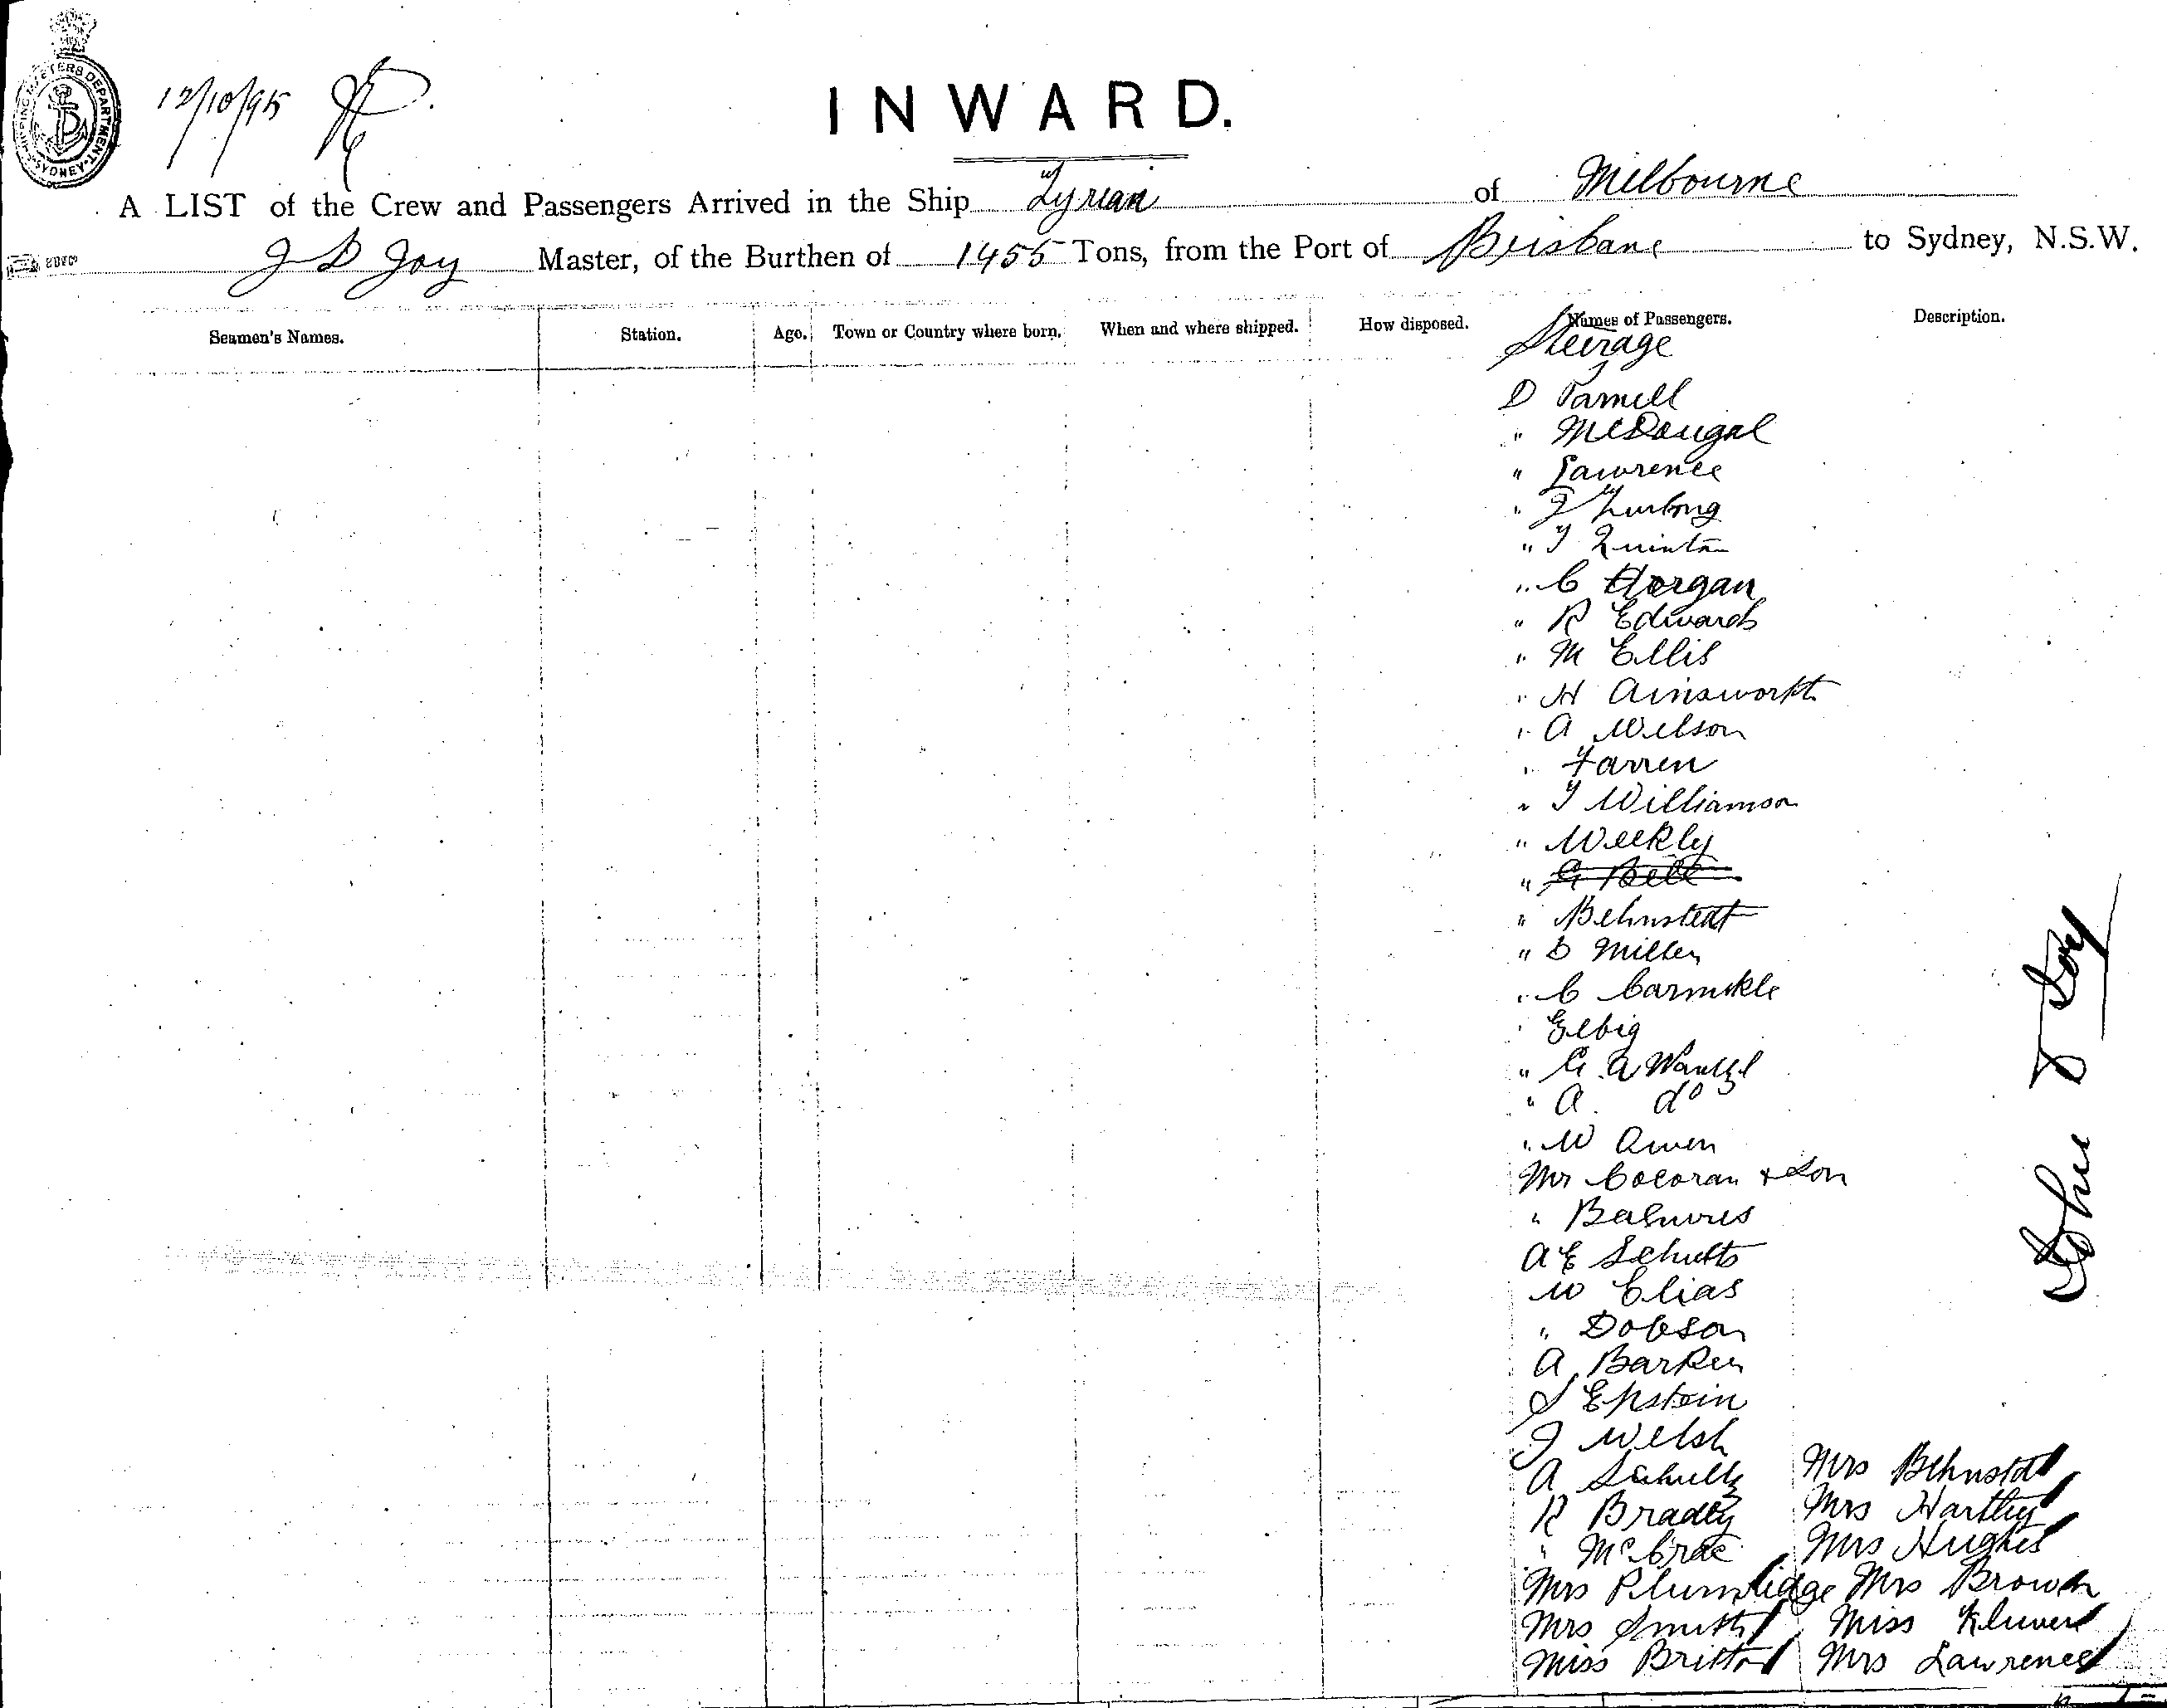 SHIPPING MASTERS DEPARTMENT SYDNEY
12/10/95
INWARD.
A LIST of the Crew and Passengers Arrived in the Ship Tyrian of Melbourne
J D Joy Master, of the Burthen of 1455 Tons, from the Port of Brisbane to Sydney, N.S.W.
Seamen's Names. Station. Age. Town or Country where born. When and where shipped. How disposed. Names of Passengers. Description.
Steerage
D Parnell
" McDougal
" Lawrence
" J Furlong
" J Quintan
" C Horgan
" R Edwards
" M Ellis
" H Ainsworth
" A Wilson
" Farren
" J Williamson
" Weekly
" G Bell
" Behnstedt
" D Miller
" C Carmikle
" Gelbig
" G. A
" A. do
" W Owen
Mr Cocoran & Son
"
A E Schults
W Elias
" Dobson
A Barker
S Epstein
J Welsh
A Schultz Mrs Behnstdt
R Bradley Mrs Hartley
" McCrae Mrs Hughes
Mrs Plumridge Mrs Brown
Mrs Smith Miss Kluver
Miss Britton Mrs Lawrence
John D Joy